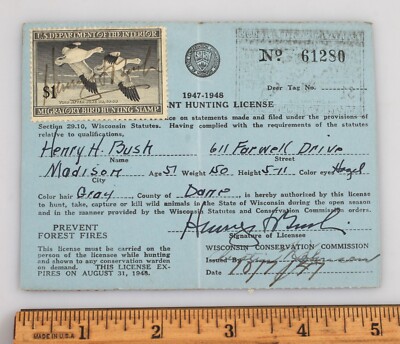 U.S. DEPARTMENT OF THE INTERIOR
$1
MIGRATORY BIRD HUNTING STAMP
No 61280
Deer Tag No.
1947-1948
NT HUNTING LICENSE
on statements made and filed under the provisions of
Section 29.10, Wisconsin Statutes. Having complied with the requirements of the statutes
relative to qualifications,
Henry H. Bush 611 Farwell Drive
Name Street
Madison Age 51 Weight 150 Height 5-11 Color eyes Hazel
City
Color hair Gray County of Dane is hereby authorized by this license
to hunt, take, capture or kill wild animals in the State of Wisconsin during the open season
and in the manner provided by the Wisconsin Statutes and Conservation Commission orders.
PREVENT
FOREST FIRES
Signature of Licensee
This license must be carried on the
person of the licensee while hunting
and shown to any conservation warden
on demand. THIS LICENSE EX-
PIRES ON AUGUST 31, 1948.
WISCONSIN CONSERVATION COMMISSION
Issued By
Date
1
2
3
4
MADE IN U.S.A.